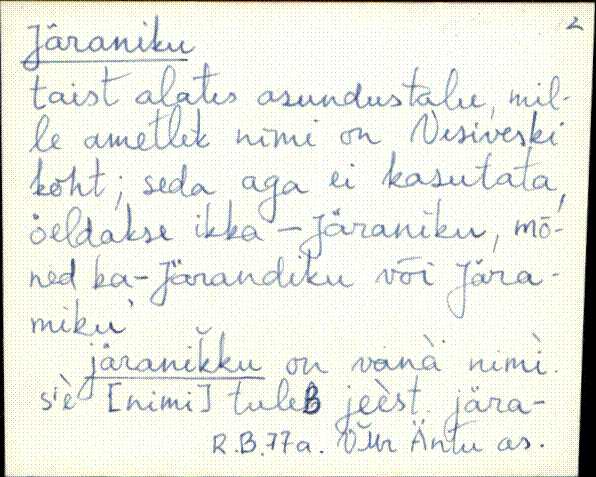 2
Järaniku
taist alates asundustalu, mil-
le ametlik nimi on Vesiveski
koht; seda aga ei kasutata,
öeldakse ikka - Järaniku, mõ-
ned ka - Järandiku või Jära-
miku.
järanikku on vanà nimì.
siè [nimi] tuleB jeèst jära-
R.B.77a. VMr Äntu as.